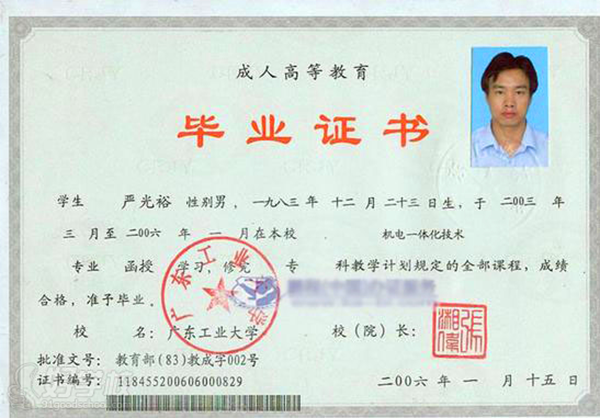 成人高等教育
毕业证书
学生 严光裕 性别男，一九八三年 十二月 二十三日生，于 二00三 年
三 月至 二00六 年 一 月在本校 机电一体化技术
专业 函授 学习，修完 专 科教学计划规定的全部课程，成绩
合格，准予毕业。
校 名：广东工业大学 校（院）长：
张湘伟
广东工业大学
批准文号：教育部(83)教成字002号
证书编号：118455200606000829
二00六 年 一 月 十五 日